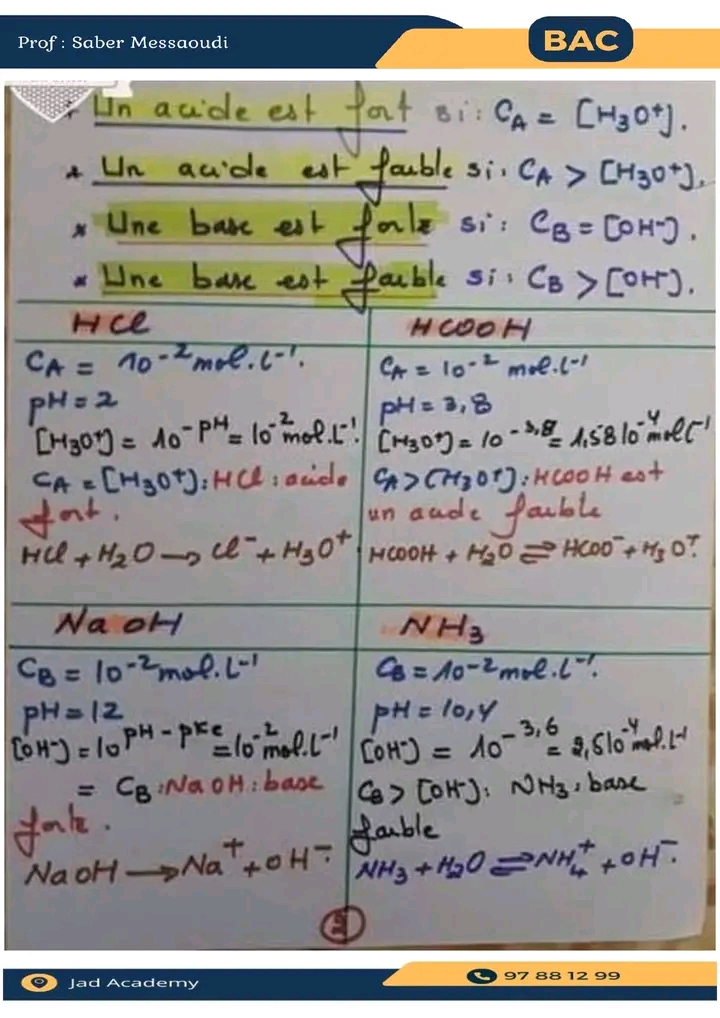 Prof : Saber Messaoudi
BAC
Un acide est fort si : CA = [H3O+].
* Un acide est faible si : CA > [H3O+].
* Une base est forte si : CB = [OH-].
* Une base est faible si : CB > [OH-].
HCl
CA = 10-2 mol.L-1.
pH = 2
[H3O+] = 10-pH = 10-2 mol.L-1.
CA = [H3O+] : HCl : acide
fort.
HCl + H2O → Cl- + H3O+.
HCOOH
CA = 10-2 mol.L-1
pH = 3,8
[H3O+] = 10-3,8 = 1,58 10-4 mol L-1
CA > [H3O+] : HCOOH est
un acide faible
HCOOH + H2O ⇌ HCOO- + H3O+.
NaOH
CB = 10-2 mol.L-1
pH = 12
[OH-] = 10pH - pKe = 10-2 mol.L-1
= CB : NaOH : base
forte.
NaOH → Na+ + OH-.
NH3
CB = 10-2 mol.L-1.
pH = 10,4
[OH-] = 10-3,6 = 2,5 10-4 mol.L-1
CB > [OH-] : NH3 : base
faible
NH3 + H2O ⇌ NH4+ + OH-.
Jad Academy
97 88 12 99